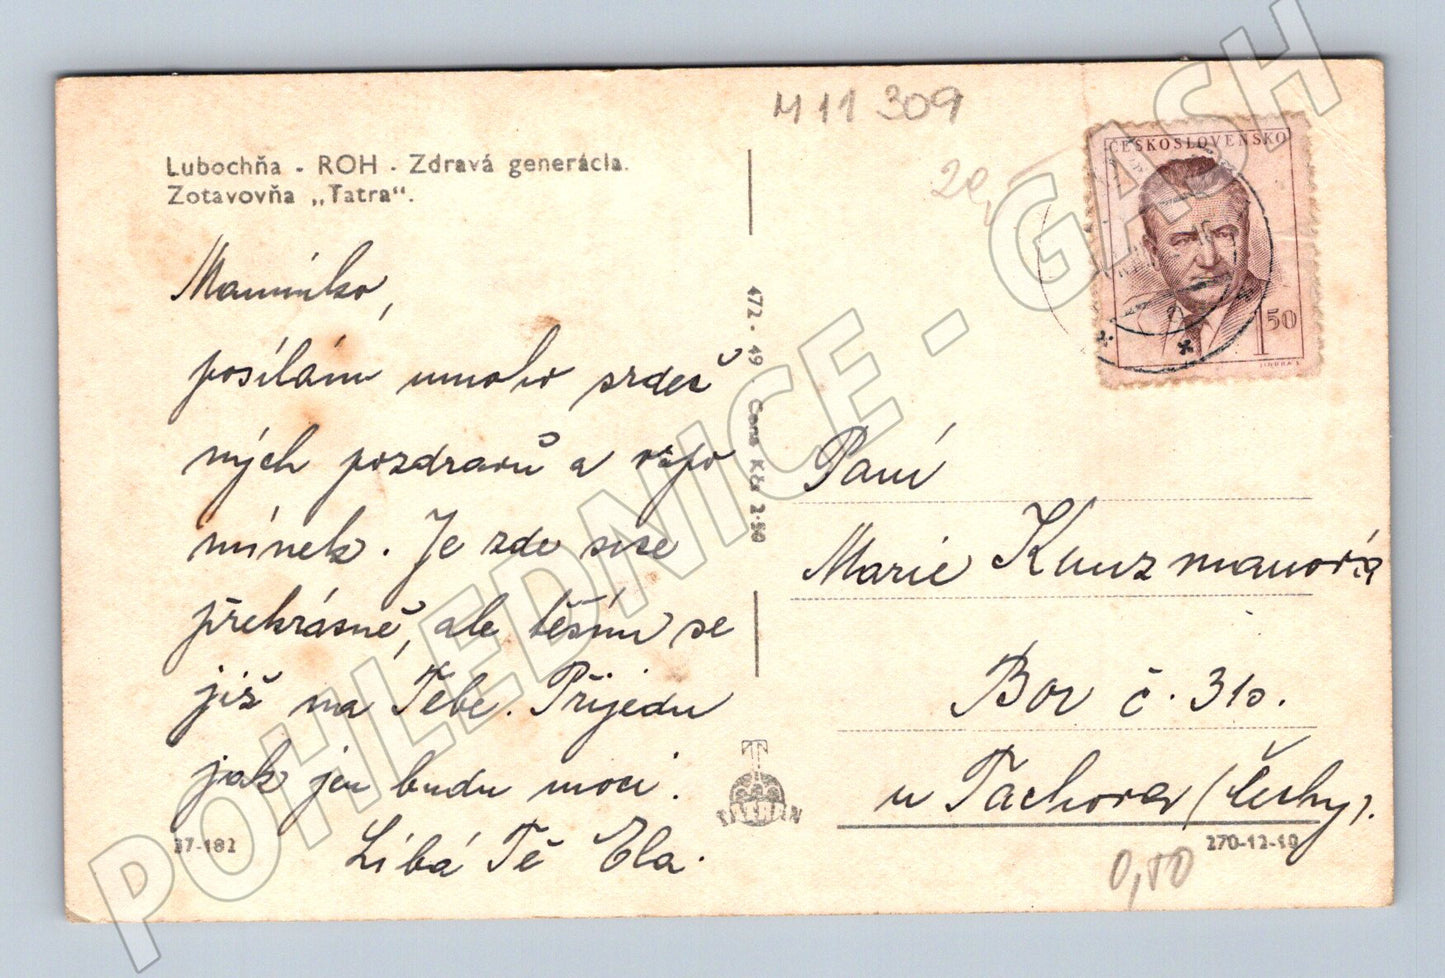 M 11 309
20,-
ČESKOSLOVENSKO
1 50
JINDRA
Lubochňa - ROH - Zdravá generácia.
Zotavovňa „Tatra“.
Maminko,
posílám mnoho srdeč
ných pozdravů a vzpo
mínek. Je zde sice
překrásně, ale těším se
již na Tebe. Přijedu
jak jen budu moci.
Líbá Tě Ela.
472 · 49 Cena Kčs 2·50
Paní
Marie Kunzmanová
Bor č. 310.
u Tachova (Čechy).
TATRAN
37-182
270-12-49
0,50
POHLEDNICE - GASH